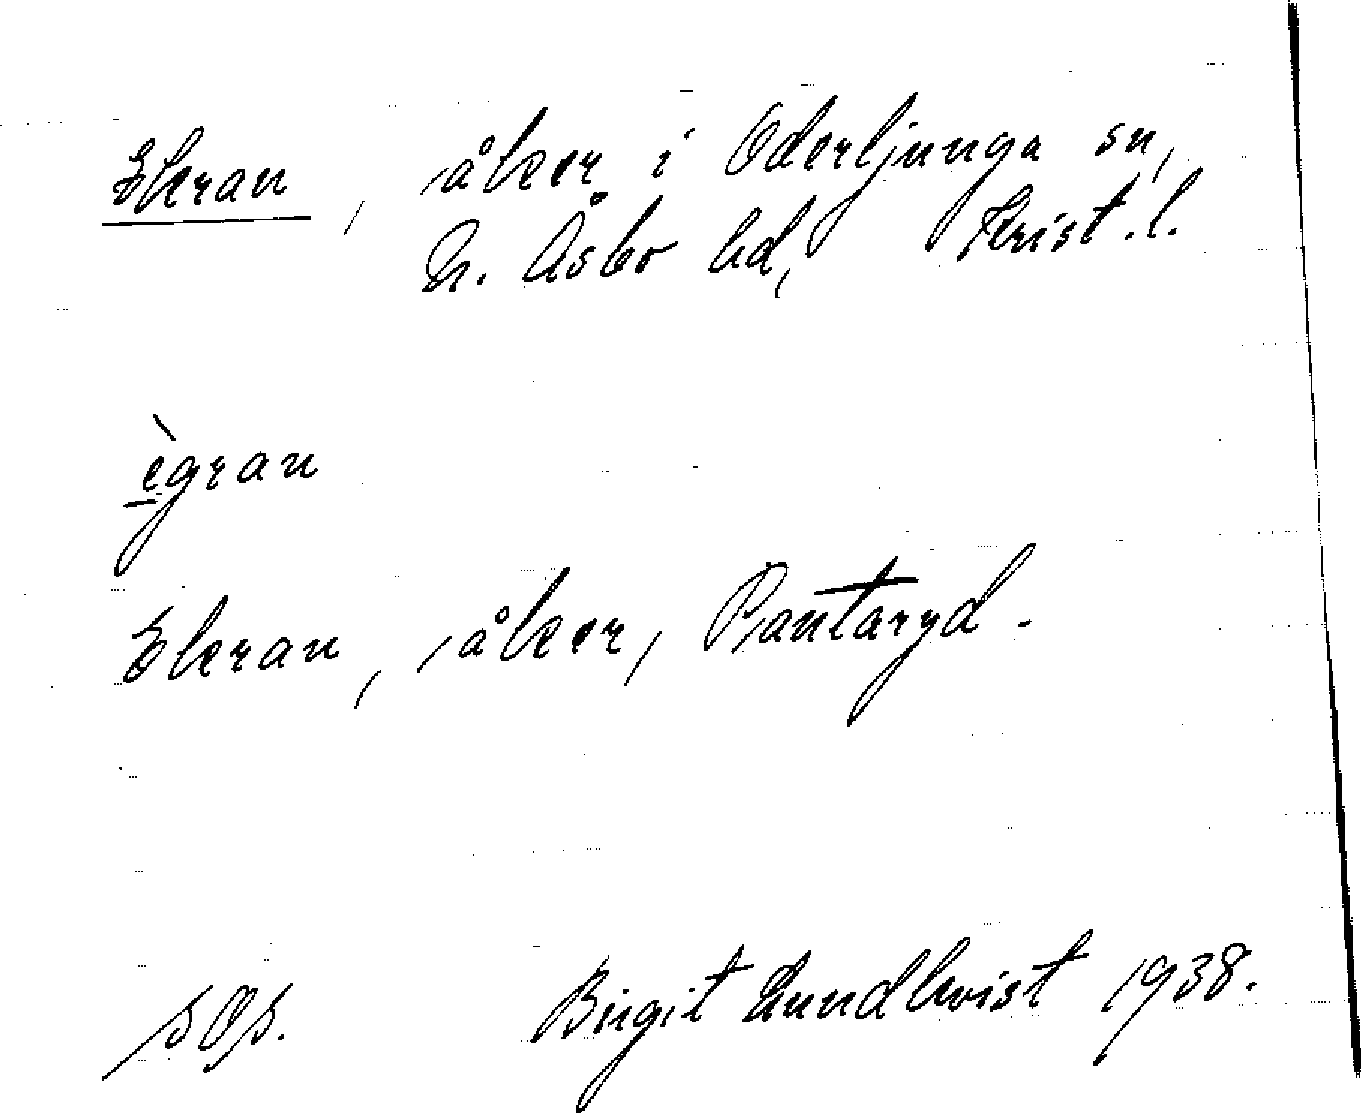 Ekran, åker i Oderljunga sn,
N. Åsbo hd, Krist. l.
ègran
Ekran, åker, Pantaryd.
Birgit Lundkvist 1938.